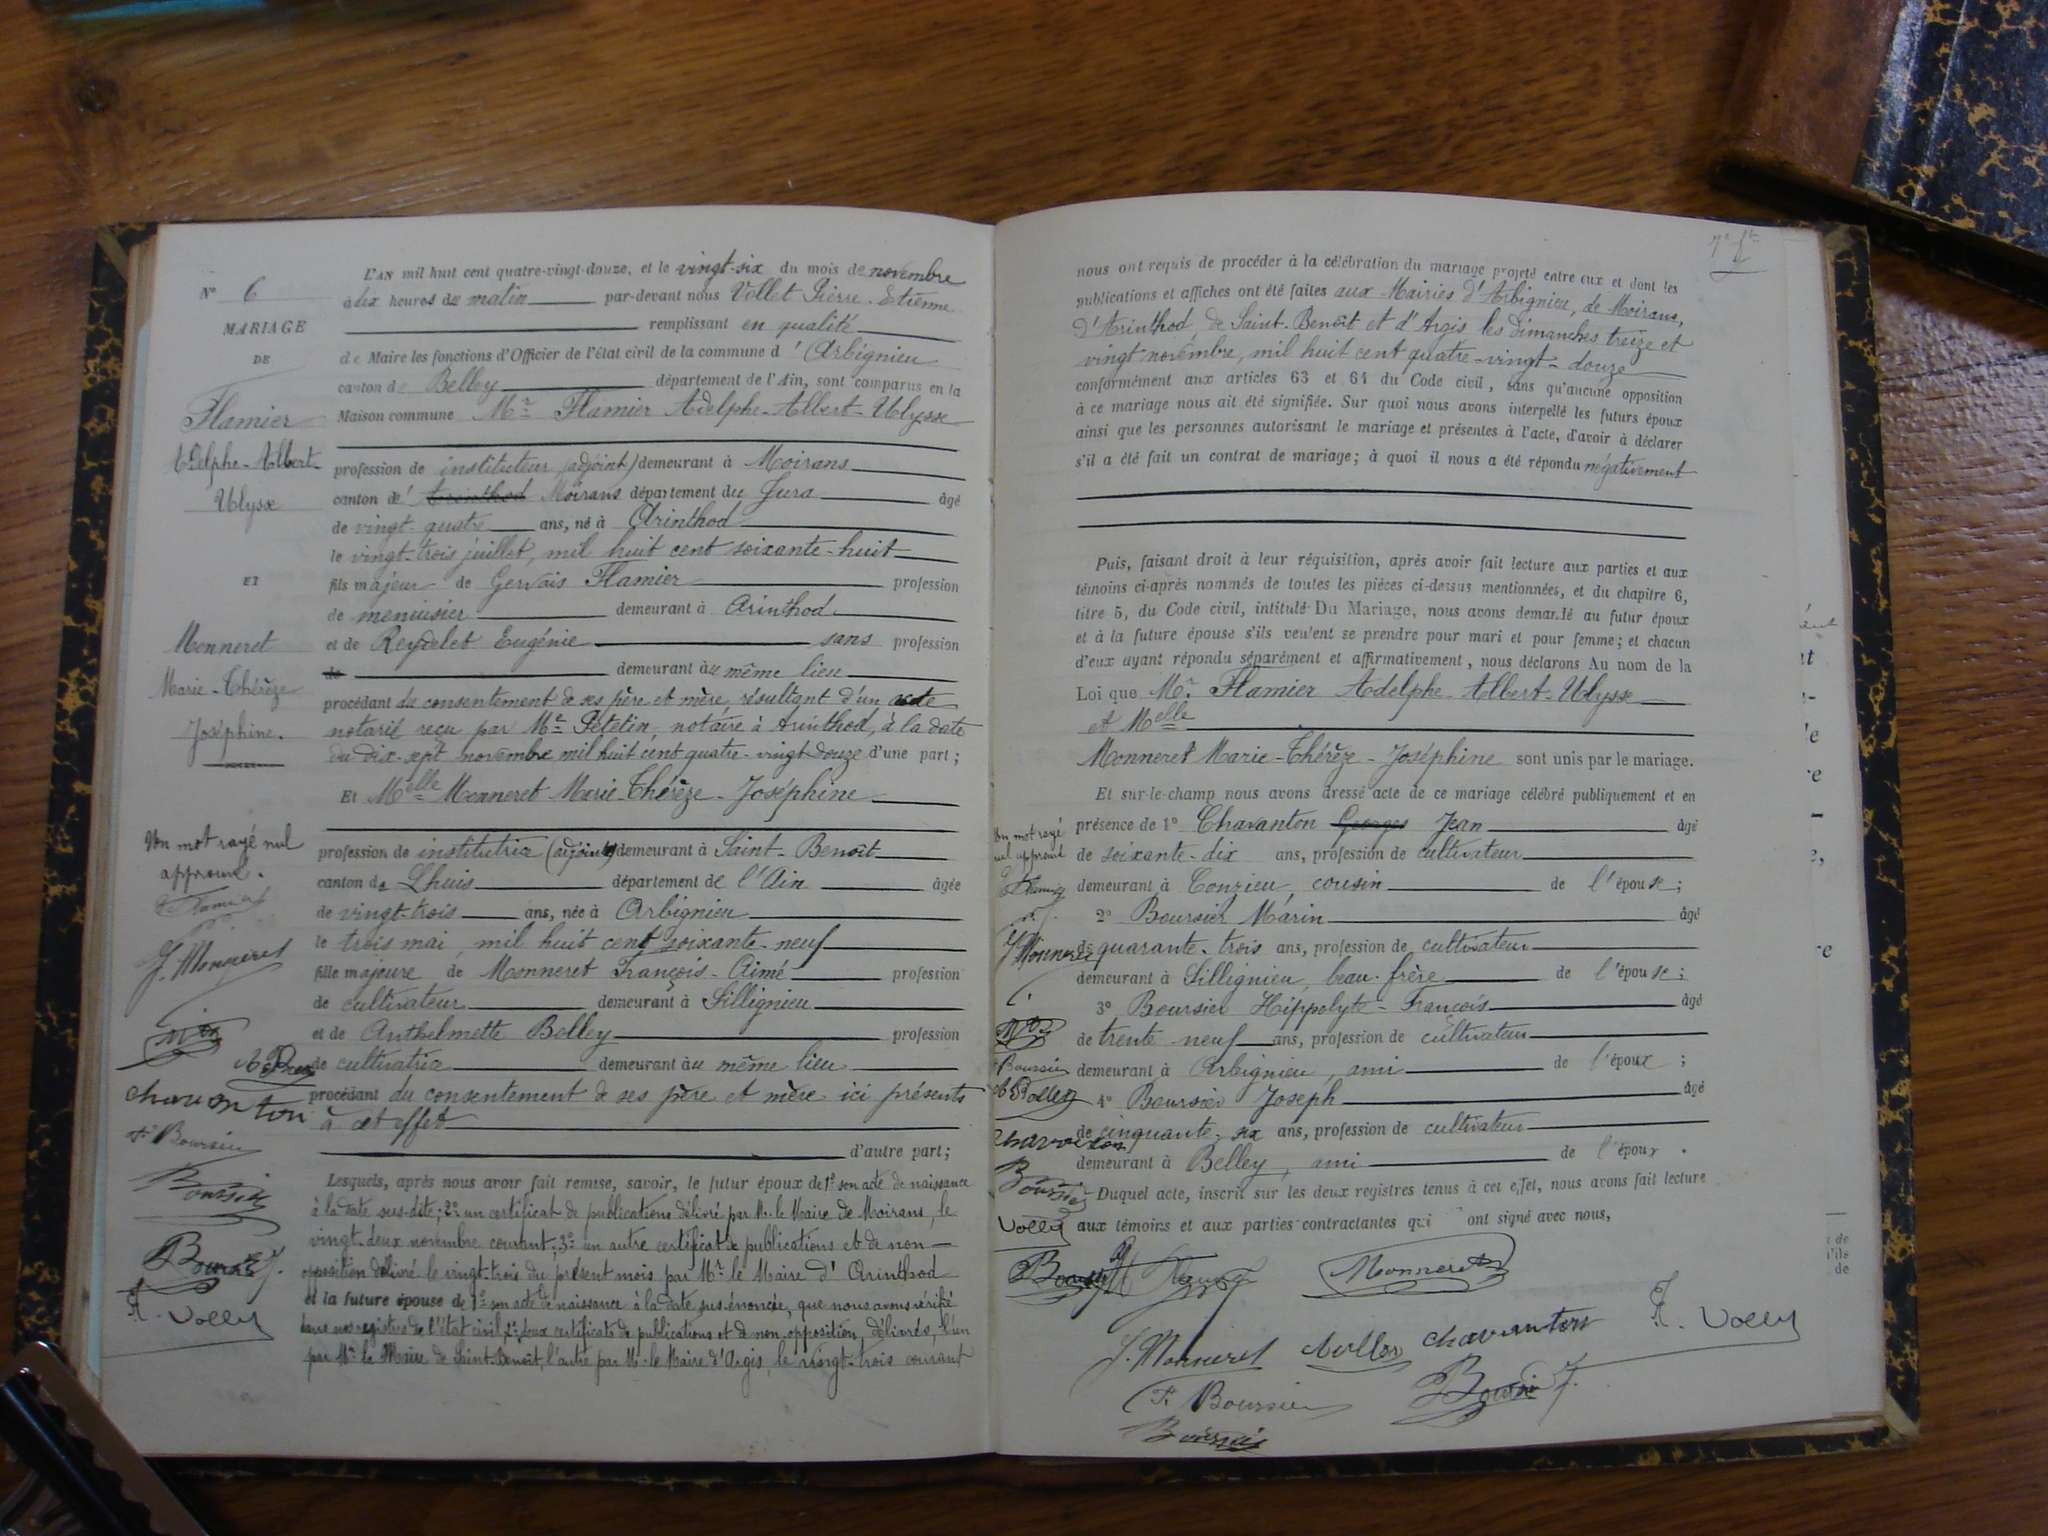 N° 6
MARIAGE
DE
Flamier
Adelphe-Albert-
Ulysse
ET
Monneret
Marie-Thérèze
Joséphine.
L'AN mil huit cent quatre-vingt-douze, et le vingt-six du mois de novembre
à dix heures du matin par-devant nous Vollet Pierre-Etienne
remplissant en qualité
de Maire les fonctions d'Officier de l'état civil de la commune d'Arbignieu
canton de Belley département de l'Ain, sont comparus en la
Maison commune Mr Flamier Adelphe-Albert-Ulysse
profession de instituteur (adjoint) demeurant à Moirans
canton de Arinthod Moirans département du Jura âgé
de vingt-quatre ans, né à Arinthod
le vingt-trois juillet, mil huit cent soixante-huit
fils majeur de Gervais Flamier profession
de menuisier demeurant à Arinthod
et de Reydelet Eugénie sans profession
de demeurant au même lieu
procédant du consentement de ses père et mère, résultant d'un acte
notarié reçu par Me Petetin, notaire à Arinthod, à la date
du dix-sept novembre mil huit cent quatre-vingt douze d'une part;
Et Melle Monneret Marie-Thérèze-Joséphine
profession de institutrice (adjointe) demeurant à Saint-Benoît
canton de Lhuis département de l'Ain âgée
de vingt-trois ans, née à Arbignieu
le trois mai, mil huit cent soixante-neuf
fille majeure de Monneret François-Aimé profession
de cultivateur demeurant à Sillignieu
et de Anthelmette Bolley profession
de cultivatrice demeurant au même lieu
procédant du consentement de ses père et mère ici présents
à cet effet
d'autre part;
Lesquels, après nous avoir fait remise, savoir, le futur époux de 1° son acte de naissance
à la date sus-dite; 2° un certificat de publications délivré par Mr le Maire de Moirans, le
vingt-deux novembre courant; 3° un autre certificat de publications et de non-
opposition délivré le vingt-trois du présent mois par Mr le Maire d'Arinthod
et la future épouse de 1° son acte de naissance à la date sus-énoncée, que nous avons vérifié
dans nos registres de l'état civil 2° deux certificats de publications et de non opposition, délivrés, l'un
par Mr le Maire de Saint-Benoît, l'autre par Mr le Maire d'Argis, le vingt-trois courant
Un mot rayé nul
approuvé.
J. Monneret
Chavanton
F. Boursier
Boursier
Boursier J.
Volley
nous ont requis de procéder à la célébration du mariage projeté entre eux et dont les
publications et affiches ont été faites aux Mairies d'Arbignieu, de Moirans,
d'Arinthod, de Saint-Benoît et d'Argis les dimanches treize et
vingt novembre, mil huit cent quatre-vingt-douze
conformément aux articles 63 et 64 du Code civil, sans qu'aucune opposition
à ce mariage nous ait été signifiée. Sur quoi nous avons interpellé les futurs époux
ainsi que les personnes autorisant le mariage et présentes à l'acte, d'avoir à déclarer
s'il a été fait un contrat de mariage; à quoi il nous a été répondu négativement
Puis, faisant droit à leur réquisition, après avoir fait lecture aux parties et aux
témoins ci-après nommés de toutes les pièces ci-dessus mentionnées, et du chapitre 6,
titre 5, du Code civil, intitulé Du Mariage, nous avons demandé au futur époux
et à la future épouse s'ils veulent se prendre pour mari et pour femme; et chacun
d'eux ayant répondu séparément et affirmativement, nous déclarons Au nom de la
Loi que Mr Flamier Adelphe-Albert-Ulysse
et Melle
Monneret Marie-Thérèze-Joséphine sont unis par le mariage.
Et sur-le-champ nous avons dressé acte de ce mariage célébré publiquement et en
présence de 1° Chavanton Georges Jean âgé
de soixante-dix ans, profession de cultivateur
demeurant à Conzieu, cousin de l'épouse;
2° Boursier Marin âgé
de quarante-trois ans, profession de cultivateur
demeurant à Sillignieu, beau-frère de l'épouse;
3° Boursier Hippolyte-François âgé
de trente neuf ans, profession de cultivateur
demeurant à Arbignieu, ami de l'époux;
4° Boursier Joseph âgé
de cinquante-six ans, profession de cultivateur
demeurant à Belley, ami de l'époux.
Duquel acte, inscrit sur les deux registres tenus à cet effet, nous avons fait lecture
aux témoins et aux parties contractantes qui ont signé avec nous,
Un mot rayé
nul approuvé
J. Monneret
Boursier
Chavanton
Boursier
Volley
Monneret
J. Monneret Chavanton Volley
F. Boursier Boursier J.
Boursier